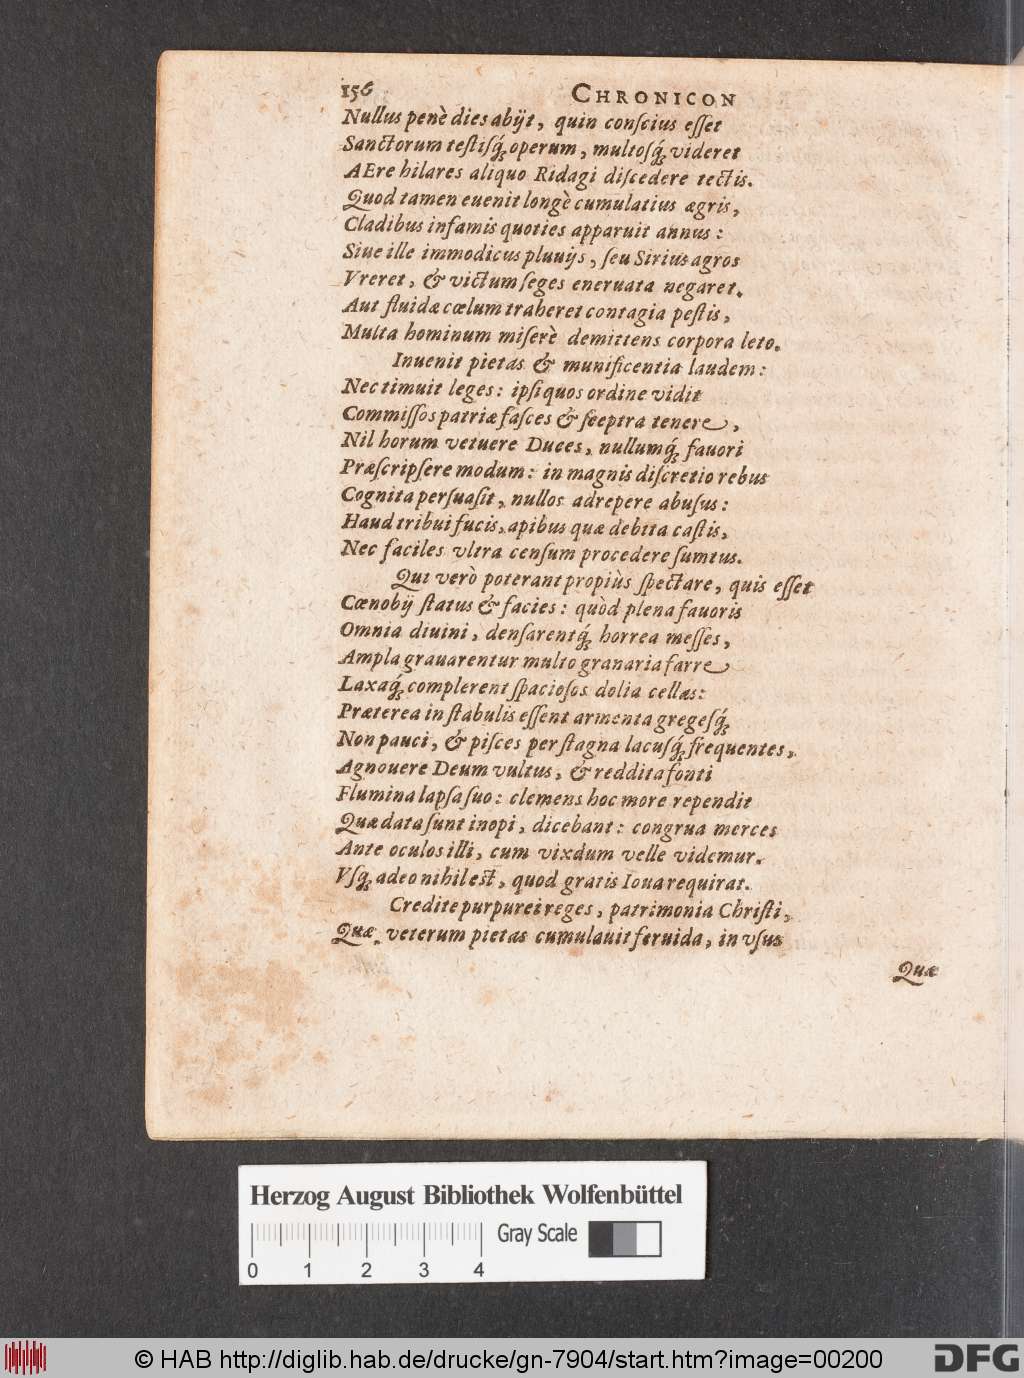 156 CHRONICON
Nullus penè dies abijt, quin conſcius eſſet
Sanctorum teſtiſq́; operum, multoſq́; videret
AEre hilares aliquo Ridagi diſcedere tectis.
Quod tamen euenit longè cumulatius ægris,
Cladibus infamis quoties apparuit annus:
Siue ille immodicus pluuijs, ſeu Sirius agros
Vreret, & victum ſeges eneruata negaret.
Aut fluidæ cœlum traheret contagia peſtis,
Multa hominum miſerè demittens corpora leto.
Inuenit pietas & munificentia laudem:
Nec timuit leges: ipſi quos ordine vidit
Commiſſos patriæ faſces & ſceptra tenere,
Nil horum vetuere Duces, nullumq́; fauori
Præſcripſere modum: in magnis diſcretio rebus
Cognita perſuaſit, nullos adrepere abuſus:
Haud tribui fucis, apibus quæ debita caſtis,
Nec faciles vltra cenſum procedere ſumtus.
Qui verò poterant propiùs ſpectare, quis eſſet
Cœnobij ſtatus & facies: quòd plena fauoris
Omnia diuini, denſarentq́; horrea meſſes,
Ampla grauarentur multo granaria farre
Laxaq́; complerent ſpacioſos dolia cellas:
Præterea in ſtabulis eſſent armenta gregeſq́;
Non pauci, & piſces per ſtagna lacuſq́; frequentes,
Agnouere Deum vultus, & reddita fonti
Flumina lapſa ſuo: clemens hoc more rependit
Quæ data ſunt inopi, dicebant: congrua merces
Ante oculos illi, cum vixdum velle videmur.
Vſq́; adeo nihil est, quod gratis Ioua requirat.
Credite purpurei reges, patrimonia Chriſti,
Quæ veterum pietas cumulauit feruida, in vſus
Quæ
Herzog August Bibliothek Wolfenbüttel
Gray Scale
0 1 2 3 4
© HAB http://diglib.hab.de/drucke/gn-7904/start.htm?image=00200
DFG